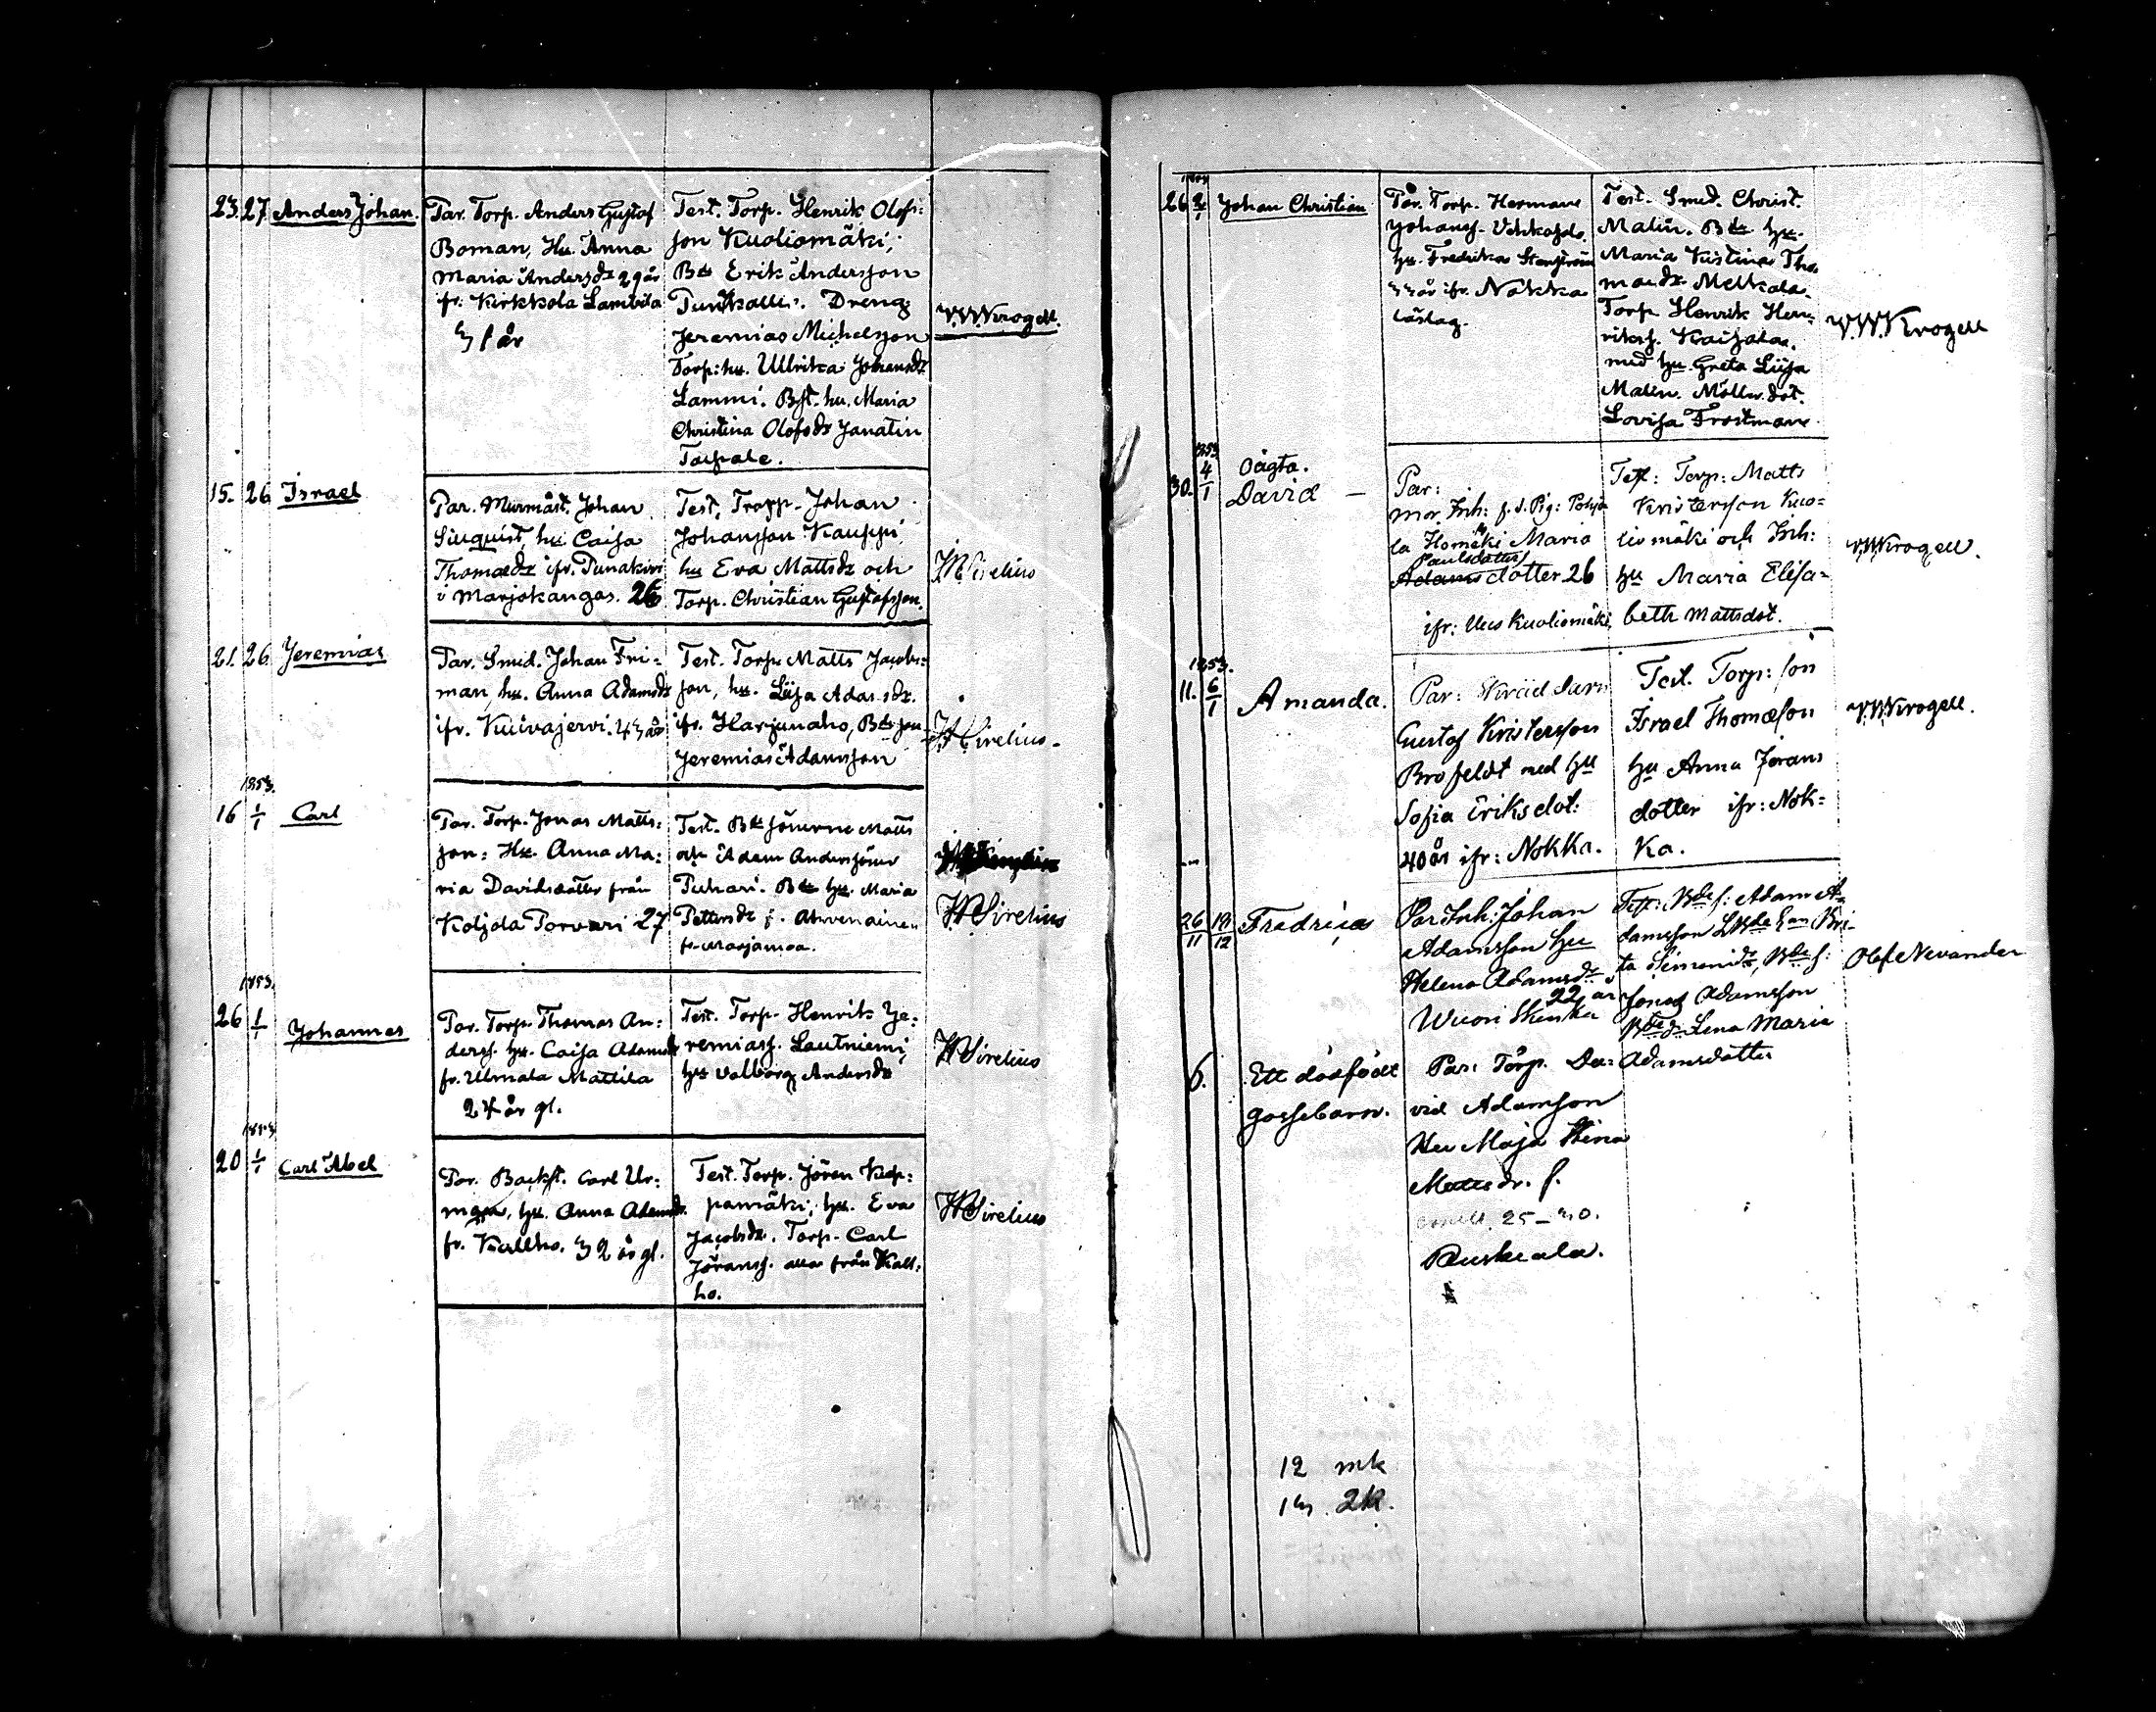 23. 27. Anders Johan. Par. Torp. Anders Gustaf
Boman, Hu. Anna
Maria Andersdr 29 år
fr. Kirkkola Lambila
31 år
Test. Torp. Henrik Olofs-
son Kuoliomäki,
Bds Erik Andersson
Dreng
Jeremias Michelsson
Torp: hu. Ullrika Johansdr
Lammi. Bst. hu. Maria
Christina Olofsdr Janatin
Taipale.
V.W.Krogell.
15. 26 Israel
Par. Murmäst. Johan
hu Caisa
Thomædr ifr. Punakivi
i Marjokangas. 26
Test. Torp. Johan
Johansson Kauppi,
hu Eva Mattsdr och
Torp. Christian Gustafsson.
Sirelius
21. 26 Jeremias
Par. Smed. Johan Fri-
man, hu. Anna Adamsdr
ifr. Kuivajervi. 43 år
Test. Torp. Matts Jacobs-
son, hu. Liisa Adamsdr.
ifr. Harjunaho, Bdsson
Jeremias Adamsson
Sirelius.
1853.
16 1/1 Carl
Par. Torp. Jonas Matts-
son: Hu. Anna Ma-
ria Davidsdotter från
Koljola Porvari 27
Test. Bds sönerne Matts
och Adam Anderssöner
Puhari. Bds hu. Maria
Pettersdr f. Ahvenainen
fr. Marjamoa.
Sirelius
1853.
26 1/1 Johannes
Par. Torp. Thomas An-
derss. hu. Caisa Adamsdr
fr. Ulmala Mattila
24 år gl.
Test. Torp. Henrik Je-
remiass. Lautniemi,
hu Valborg Andersdr
Sirelius
1853.
20 1/1 Carl Abel
Par. Backst. Carl Ur-
man, hu. Anna Adamsdr.
fr. Kallho. 32 år gl.
Test. Torp. Jöran Kop-
pamäki, hu. Eva
Jacobsdr. Torp. Carl
Jöranss. alla från Kall-
ho.
Sirelius
26 2/1 Johan Christian
Par. Torp. Herman
Johanss.
hu. Fredrika Stenström
33 år ifr. Nokka
Test. Smed. Christ.
Malin. Bds hu.
Maria Kristina Tho-
mædr Metkala.
Torp Henrik Hen-
rikss.
med hu. Greta Liisa
Malin. Möllw. dot.
Lovisa Frostman.
V.W.Krogell
1853
30. 4/1 Oägta.
David —
Par:
mor. Inh: f. d. Pig: Pohjo
la Homäki Maria
Paulsdotter
Adamsdotter 26
ifr: Uus Kuoliomäki
Test: Torp: Matts
Kristersson Kuo-
liomäki och Inh:
hu Maria Elisa-
beth Mattsdot.
V.W.Krogell.
1853.
11. 6/1 Amanda.
Par: Skräddarn
Gustaf Kristersson
Brofeldt med hu
Sofia Eriksdot:
40 år ifr: Nokka.
Test. Torp: son
Israel Thomæson
hu Anna Jörans
dotter ifr: Nok-
ka.
V.W.Krogell.
26/11 19/12 Fredrica
Par Inh: Johan
Adamsson Hu
Helena Adamsdr
22 år
Wuori Skinka
Test: Bds s: Adam A-
damsson Bri-
ta Simonsdr, Bde s:
Jonas Adamsson
Bde d. Lena Maria
Adamsdotter
Olof Nevander
6. Ett dödfödt
gossebarn.
Par: Torp. Da-
vid Adamson
Hu Maja Stina
Mattsdr. f.
emell. 25-30.
Ruskeala.
12 mk
13. 2k.